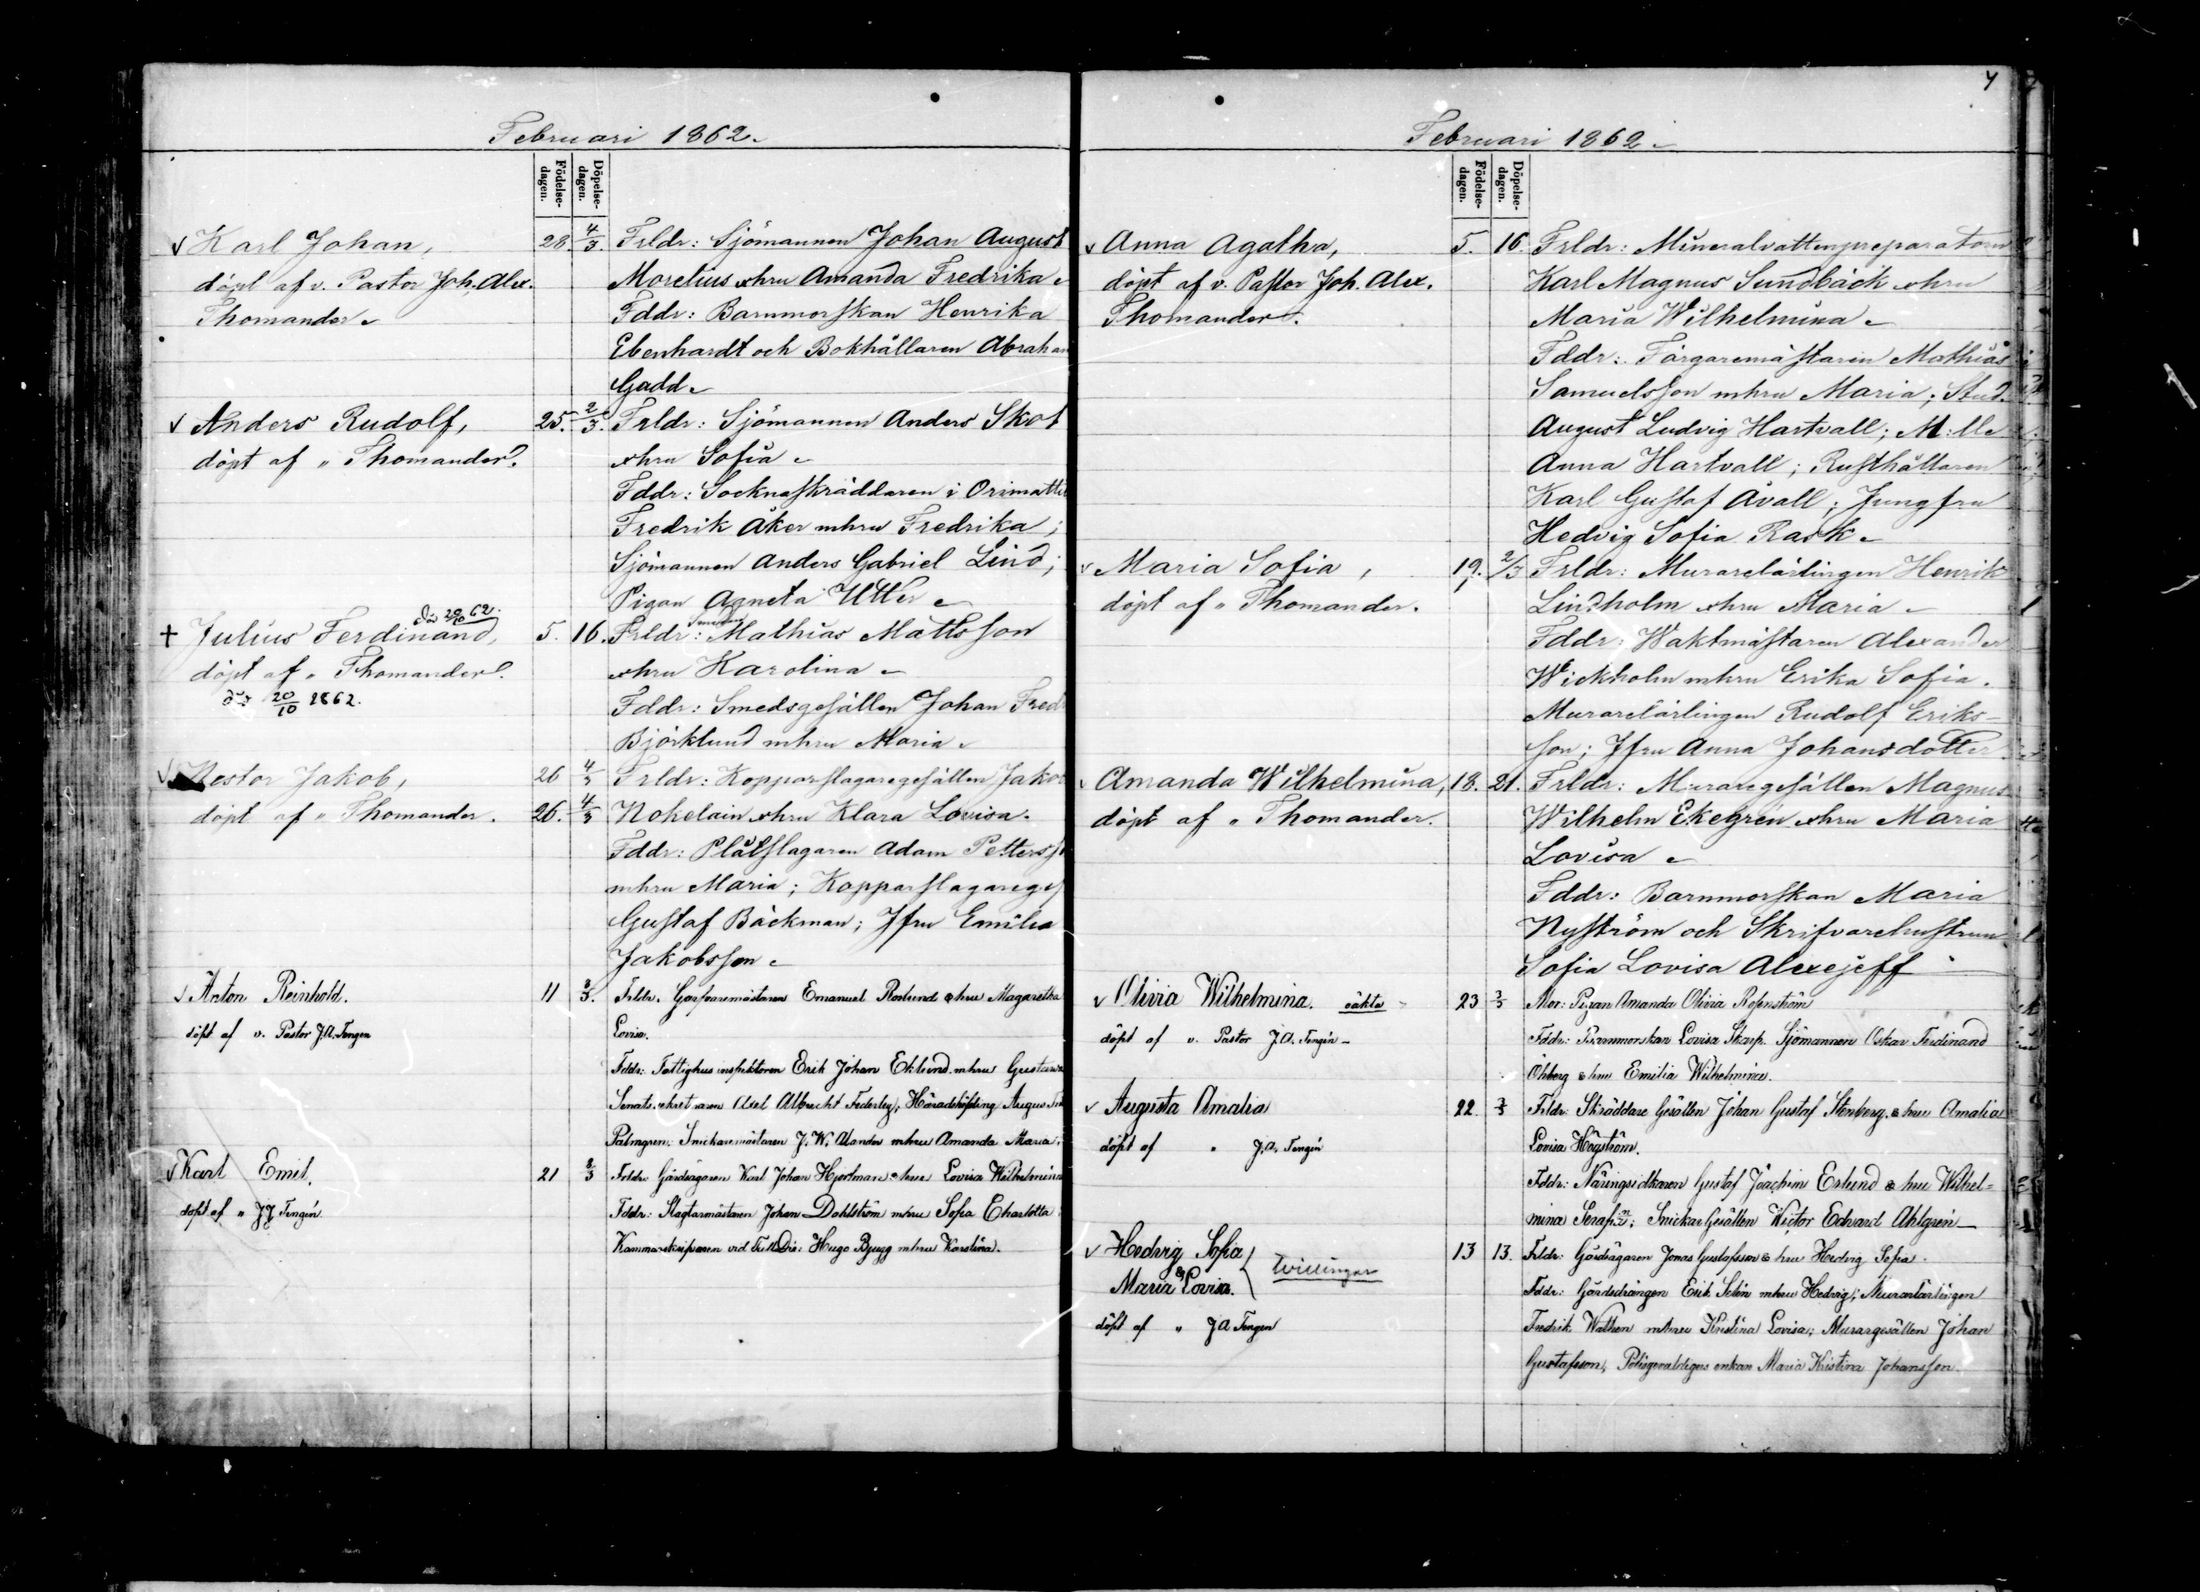 Februari 1862.
Födelse-
dagen.
Döpelse-
dagen.
Karl Johan,
döpt af v. Pastor Joh. Alex.
Thomander.
28. 4/3.
Frldr: Sjömannen Johan August
Morelius o hru Amanda Fredrika.
Fddr: Barnmorskan Henrika
Ebenhardt och Bokhållaren Abraham
Gadd.
Anders Rudolf,
döpt af " Thomander.
25. 2/3.
Frldr: Sjömannen Anders Skot
o hru Sofia.
Fddr: Socknaskräddaren i Orimattil
Fredrik Åker m hru Fredrika;
Sjömannen Anders Gabriel Lind;
Pigan Agneta Utter.
död 20/10 62.
† Julius Ferdinand,
döpt af " Thomander.
död 20/10 1862.
5. 16.
Frldr: Mathias Mattsson
o hru Karolina.
Fddr: Smedsgesällen Johan Fred
Björklund m hru Maria.
Nestor Jakob,
döpt af " Thomander.
26 4/3
26. 4/3
Frldr: Kopparslagaregesällen Jakob
Nokelain o hru Klara Lovisa.
Fddr: Plåtslagaren Adam Petterss
m hru Maria; Kopparslagareges
Gustaf Bäckman; Jfru Emilia
Jakobsson.
Anton Reinhold.
döpt af v. Pastor J.A. Tengen
11 2/3.
Frldr. Garfvaremästaren Emanuel Roslund o hru Magaretha
Lovisa.
Fddr: Fattighus inspektoren Erik Johan Eklund m hru Gustava
Axel Albrecht Federley; Häradshöfding August
Palmgren; Snickaremästaren J. W. Alander m hru Amanda Maria.
Karl Emil.
döpt af " Tengén
21 2/3
Frldr: Gårdsägaren Karl Johan Hjortman o hru Lovisa Wilhelmina
Fddr: Slagtarmästaren Johan Dahlström m hru Sofia Charlotta
Kammarskrifvaren vid Hugo Bjugg m hru Karolina.
7
Februari 1862.
Födelse-
dagen.
Döpelse-
dagen.
Anna Agatha,
döpt af v. Pastor Joh. Alex.
Thomander.
5. 16.
Frldr: Mineralvattenpreparatorn
Karl Magnus Sundbäck o hru
Maria Wilhelmina.
Fddr: Färgaremästaren Mathias
Samuelsson m hru Maria; Stud.
August Ludvig Hartvall; M:lle
Anna Hartvall; Rusthållaren
Karl Gustaf Åvall; Jungfru
Hedvig Sofia Rask.
Maria Sofia,
döpt af " Thomander.
19. 2/3
Frldr: Murarelärlingen Henrik
Lindholm o hru Maria.
Fddr: Waktmästaren Alexander
Wickholm m hru Erika Sofia.
Murarelärlingen Rudolf Eriks-
son; Jfru Anna Johansdotter.
Amanda Wilhelmina,
döpt af " Thomander.
18. 21.
Frldr: Muraregesällen Magnus
Wilhelm Ekegrén o hru Maria
Lovisa.
Fddr: Barnmorskan Maria
Nyström och Skrifvarehustrun
Sofia Lovisa Alexejeff
Olivia Wilhelmina. oäkta
döpt af v. Pastor J.A. Tengén
23 2/3
Mor: Pigan Amanda Olivia Rosenström
Fddr: Barnmorskan Lovisa Skarp. Sjömannen Oskar Ferdinand
Öhberg & hru Emilia Wilhelmina.
Augusta Amalia
döpt af " J.A. Tengén
22. 2/3
Frldr: Skräddare Gesällen Johan Gustaf Stenberg, & hru Amalia
Lovisa Högström.
Fddr: Näringsidkaren Gustaf Joachim Erlund & hru Wilhel=
mina Serafina; Snickar Gesällen Wictor Edvard Ahlgren
Hedvig Sofia
& Maria Lovisa. Tvillingar
döpt af " J A Tengen
13 13.
Frldr: Gårdsägaren Jonas Gustafsson & hru Hedvig Sofia.
Fddr: Gårdsdrängen Erik Selin m hru Hedvig; Murarlärlingen
Fredrik Wathen m hru Kristina Lovisa; Murargesällen Johan
Gustafsson; enkan Maria Kristina Johansson.